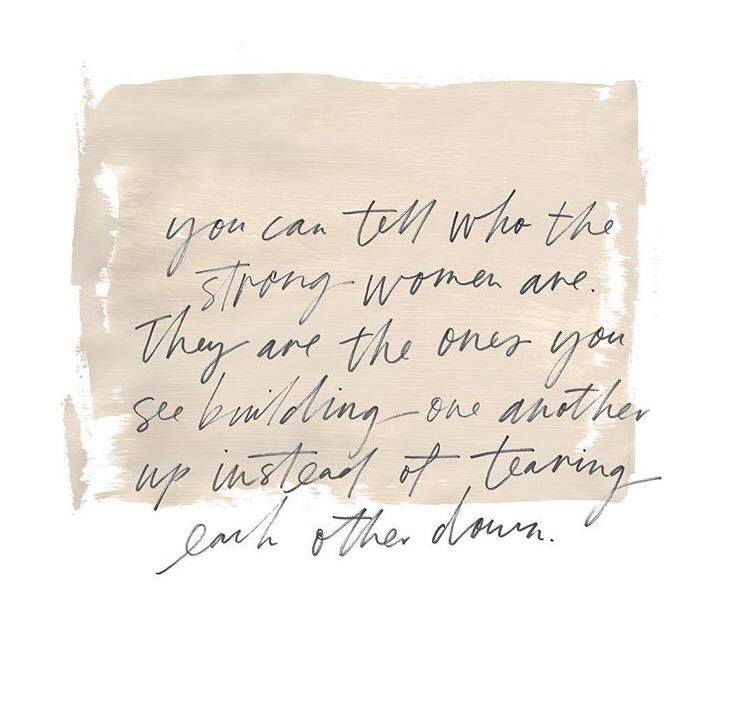 you can tell who the
strong women are.
They are the ones you
see building one another
up instead of tearing
each other down.